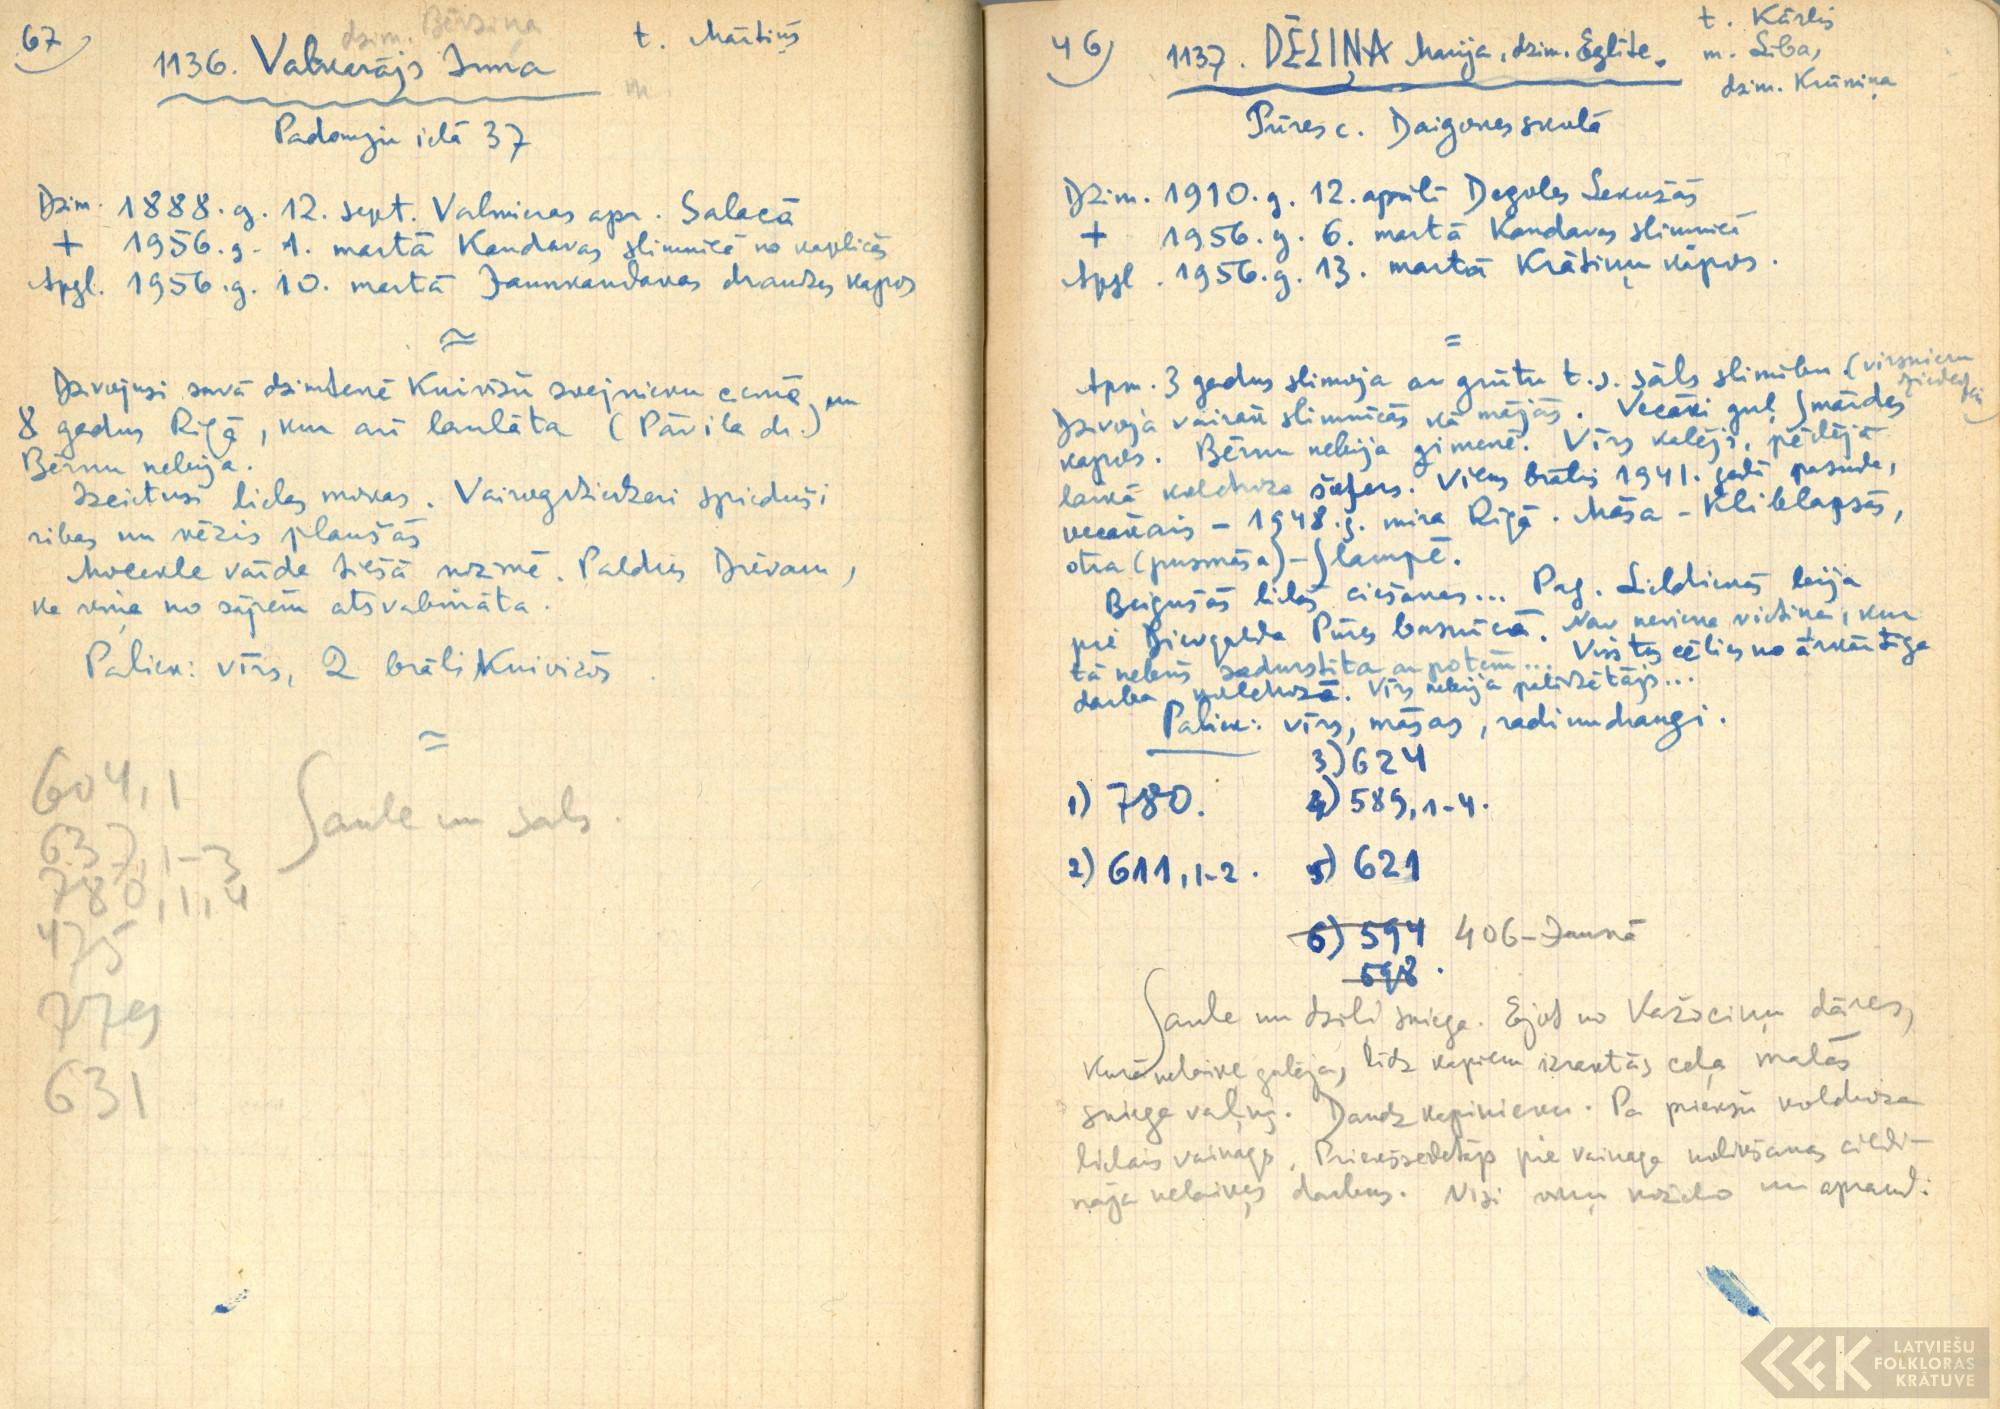 67
dzim. Bērziņa
t. Mārtiņš
1136. Valkerājs Irma
m.
Padomju ielā 37
Dzim. 1888. g. 12. sept. Valmieras apr. Salacā
+ 1956. g. 1. martā Kandavas slimnīcā no kaplicās
Apgl. 1956. g. 10. martā Jaunkandavas draudzes kapos
Dzīvojusi savā dzimtenē Kuivižu zvejnieku ciemā, un
8 gadus Rīgā, kur arī laulāta (Pāvila dr.)
Bērnu nebija.
Izcietusi lielas mokas. Vairogdziedzeri spieduši
ribas un vēzis plaušās
Mocekle vārda tiešā nozīmē. Paldies Dievam,
ka viņa no sāpēm atsvabināta.
Paliek: vīrs, 2 brāļi Kuivižos
=
604,1
637,1-3
780,1,4
475
779
631
Saule un sals.
46
1137. DĒLIŅA Marija, dzim. Eglīte.
t. Kārlis
m. Lība,
dzim. Krūmiņa
Pūres c. Daigones skolā
Dzim. 1910. g. 12. aprīlī Degoles Lekužās
+ 1956. g. 6. martā Kandavas slimnīcā
Apgl. 1956. g. 13. martā Krātiņu kapos.
=
Apm. 3 gadus slimoja ar grūtu t.s. sāls slimību (virsnieru
dziedzeri)
Dzīvoja vairāk slimnīcās kā mājās. Vecāki guļ Smārdes
kapos. Bērnu nebija ģimenē. Vīrs kalējs, pēdējā
laikā kolchoza šofers. Viens brālis 1941. gadā pazuda,
vecākais – 1948. g. mira Rīgā. Māsa – Kliblapsās,
otra (pusmāsa) – Slampē.
Beigušās lielās ciešanas... Pag. Lieldienās bija
pie Dievgalda Pūres baznīcā. Nav neviena vietiņa, kur
tā nebūs sadurstīta ar potēm... Viss tas cēlies no ārkārtīga
darba kolchozā. Vīrs nebija palīdzētājs...
Paliek: vīrs, māsas, radi un draugi.
3) 624
1) 780.
4) 589,1-4.
2) 611,1-2.
5) 621
6) 594 406-Jaunā
598.
Saule un dziļi sniega. Ejot no Kažociņu dāres,
kurā nelaiķe gulēja, līdz kapiem izraktās ceļa malās
sniega vaļņi. Daudz kapinieku. Pa priekšu kolchoza
lielais vainags. Priekšsēdētājs pie vainaga nolikšanas cildi-
nāja nelaiķes darbus. Visi viņu nožēlo un apraud.
LATVIEŠU
FOLKLORAS
KRĀTUVE